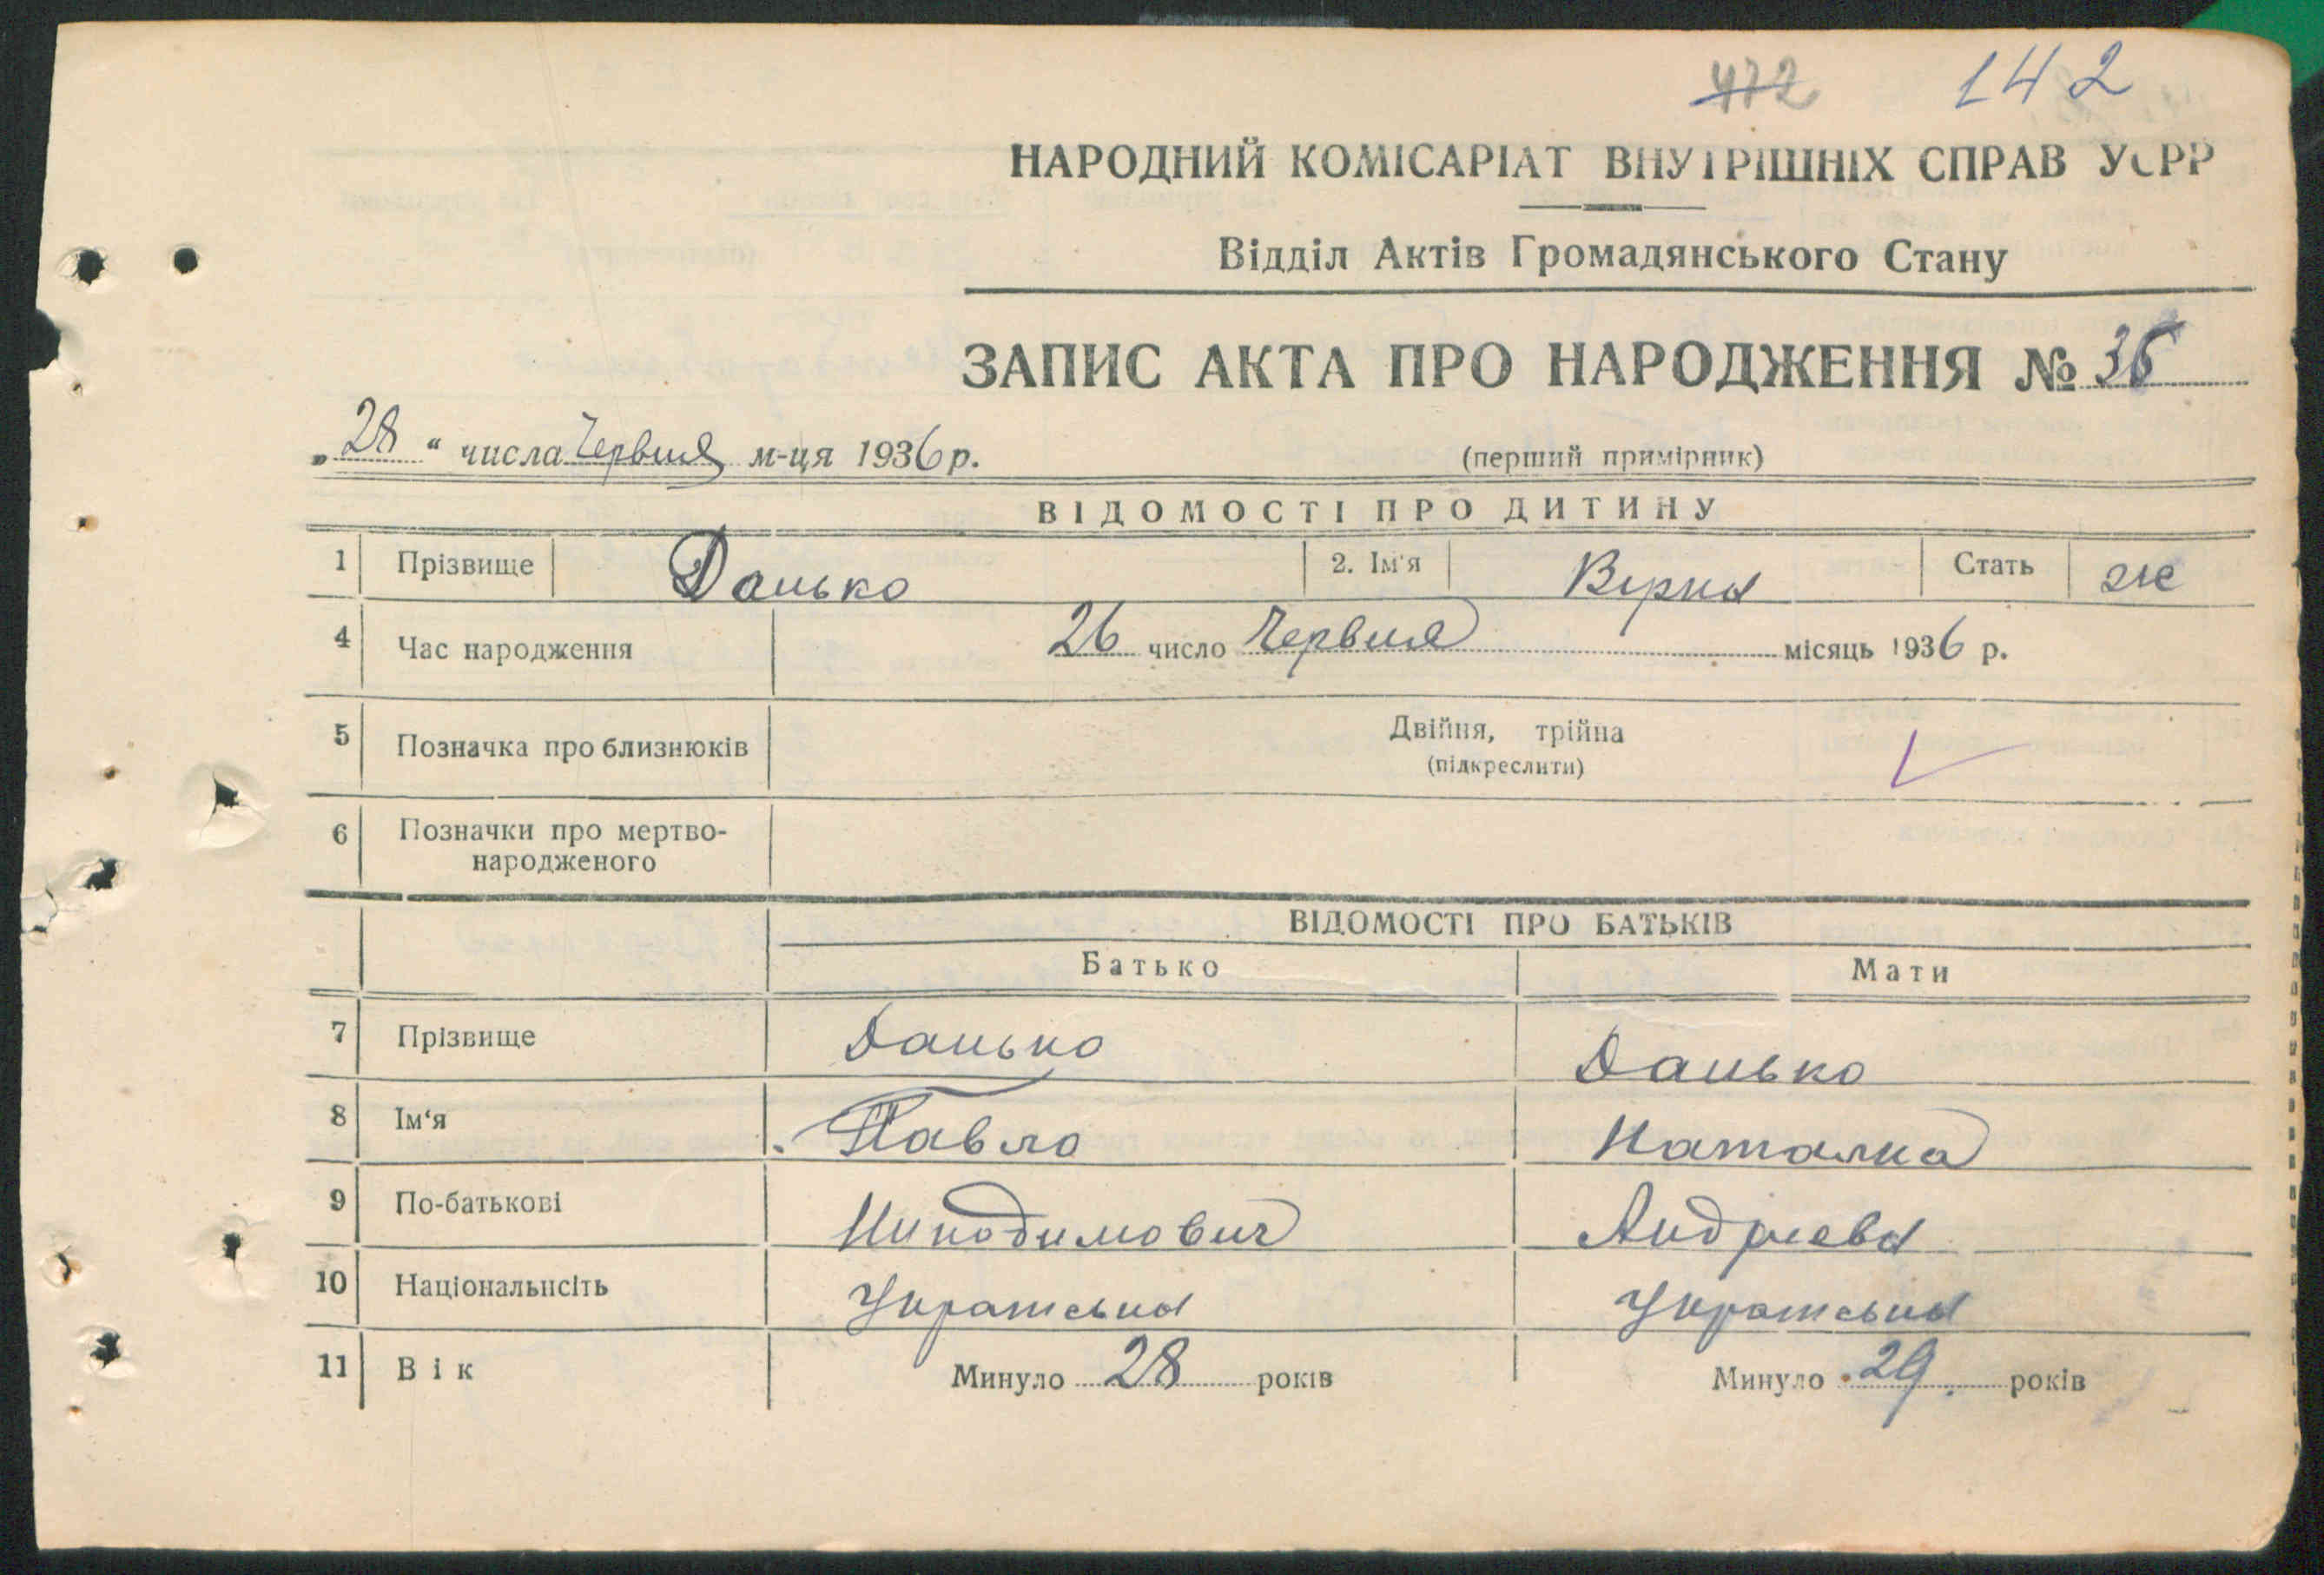 472 142
НАРОДНИЙ КОМІСАРІАТ ВНУТРІШНІХ СПРАВ УСРР
Відділ Актів Громадянського Стану
ЗАПИС АКТА ПРО НАРОДЖЕННЯ № 36
„28“ числа Червня м-ця 1936 р. (перший примірник)
ВІДОМОСТІ ПРО ДИТИНУ
1 Прізвище Данько 2. Ім'я Вірка Стать ж
4 Час народження 26 число Червня місяць 1936 р.
5 Позначка про близнюків Двійня, трійна
(підкреслити)
6 Позначки про мертво-
народженого
ВІДОМОСТІ ПРО БАТЬКІВ
Батько Мати
7 Прізвище Данько Данько
8 Ім‘я Павло Наталка
9 По-батькові Никодимович Андріева
10 Національнсіть Українська Українська
11 Вік Минуло 28 років Минуло 29 років